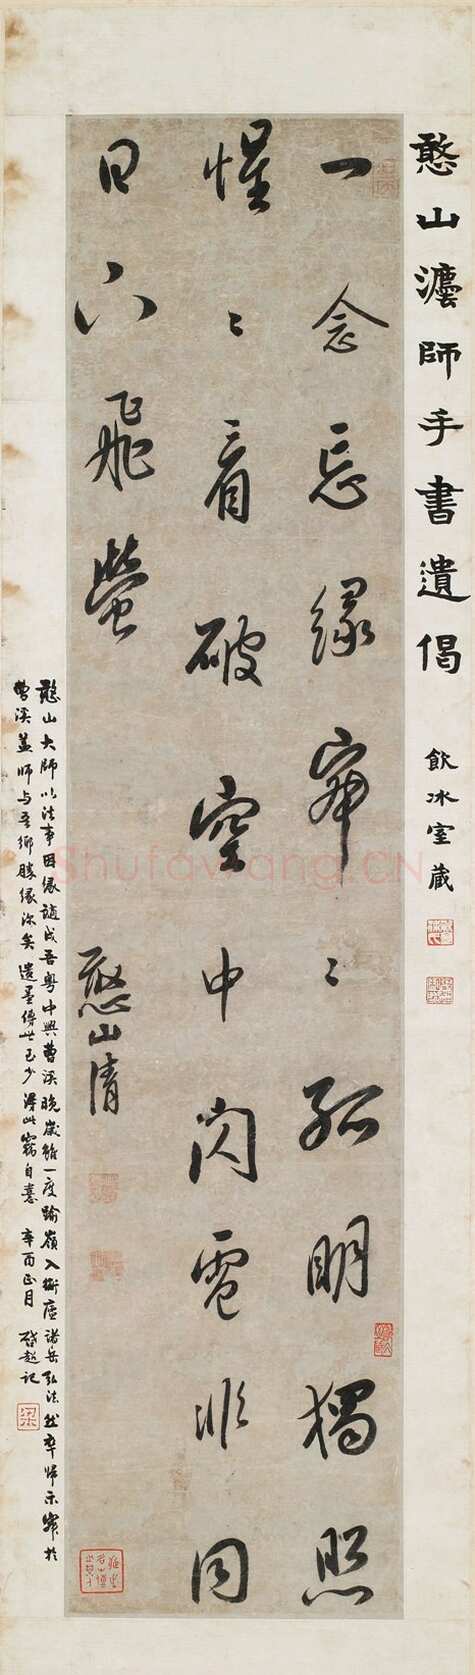 憨山灋師手書遺偈
飲冰室藏
一念忘緣寂〻孤明獨照
惺〻看破空中閃電非同
日下飛螢
憨山清
憨山大師以法事因緣謫戍吾粵中興曹溪晚歲雖一度踰嶺入衡廬諸岳弘法然卒歸示寂於
曹溪蓋師与吾鄉勝緣深矣遺墨傳世已少得此竊自憙 辛酉正月 啓超記
Shufawang.CN